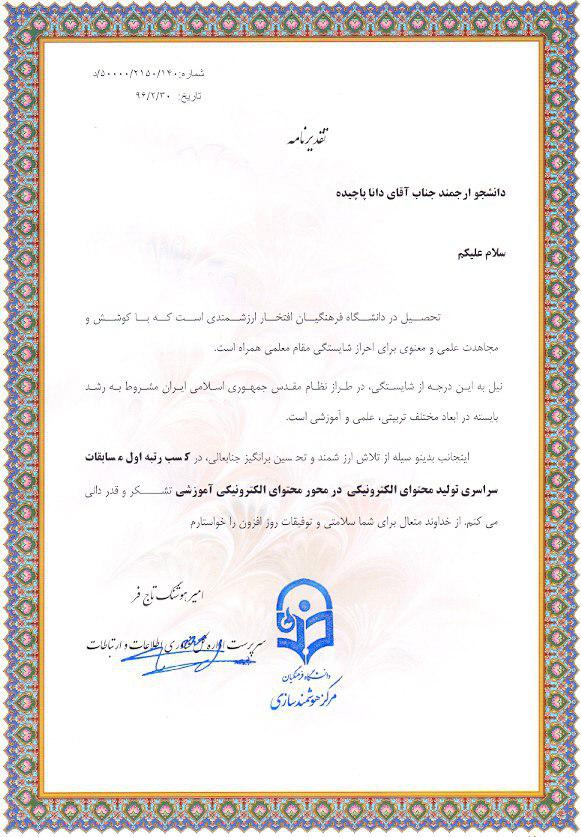 شماره: ۵۰۰۰۰/۲۱۵۰/۱۴۰/د
تاریخ: ۹۶/۲/۳۰
تقدیرنامه
دانشجو ارجمند جناب آقای دانا پاچیده
سلام علیکم
تحصیل در دانشگاه فرهنگیان افتخار ارزشمندی است که با کوشش و
مجاهدت علمی و معنوی برای احراز شایستگی مقام معلمی همراه است.
نیل به این درجه از شایستگی، در طراز نظام مقدس جمهوری اسلامی ایران مشروط به رشد
بایسته در ابعاد مختلف تربیتی، علمی و آموزشی است.
اینجانب بدینو سیله از تلاش ارز شمند و تحسین برانگیز جنابعالی، در کسب رتبه اول مسابقات
سراسری تولید محتوای الکترونیکی در محور محتوای الکترونیکی آموزشی تشکر و قدر دانی
می کنم. از خداوند متعال برای شما سلامتی و توفیقات روز افزون را خواستارم
امیرهوشنگ تاج فر
سرپرست اداره کل فناوری اطلاعات و ارتباطات
دانشگاه فرهنگیان
مرکز هوشمندسازی